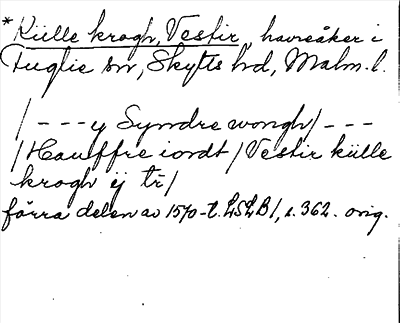 *Külle krogh, Vestir, havreåker i
Fuglie sn, Skytts hd, Malm. l.
/ - - - y Syndre wongh / - - -
/ Hauffre iordt / Vestir külle
krogh ij tr /
förra delen av 1570-t. LSLB 1, s. 362. orig.